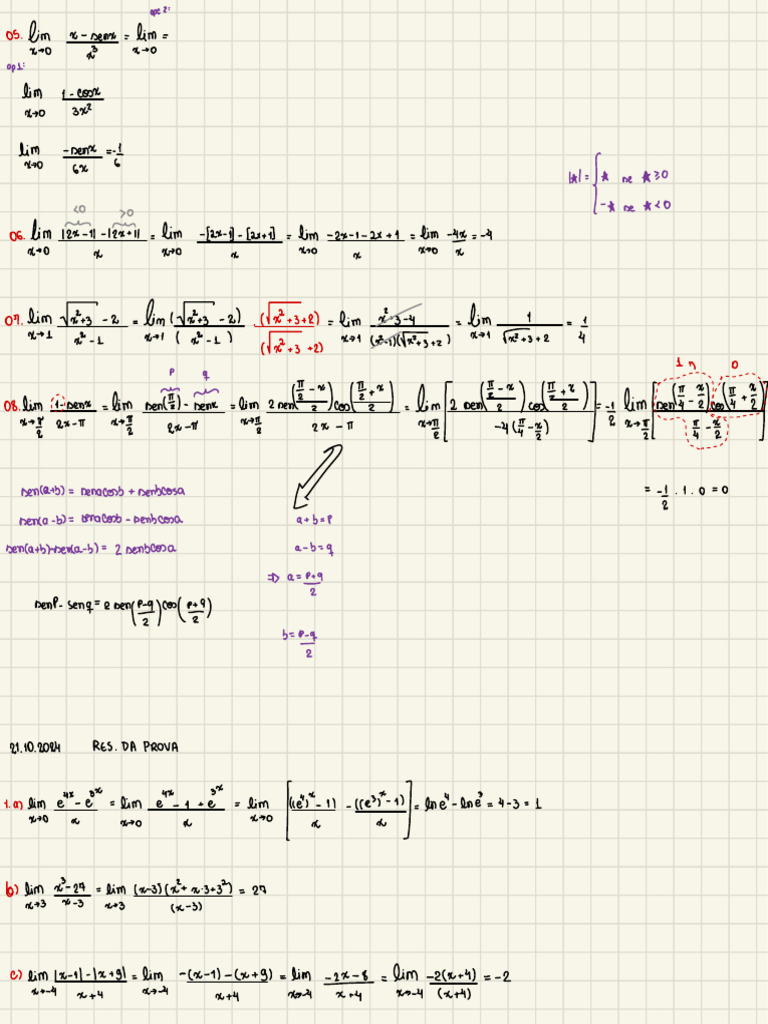 opc 2:
05. lim x→0 (x - senx)/x³ = lim x→0 =
op1:
lim x→0 (1 - cosx)/3x²
lim x→0 -senx/6x = -1/6
|★| = { ★ se ★≥0
-★ se ★<0
<0 >0
06. lim x→0 (|2x-1| - |2x+1|)/x = lim x→0 (-[2x-1] - [2x+1])/x = lim x→0 (-2x-1-2x+1)/x = lim x→0 -4x/x = -4
07. lim x→1 (√(x²+3) - 2)/(x²-1) = lim x→1 (√(x²+3) - 2)/(x²-1) · (√(x²+3)+2)/(√(x²+3)+2) = lim x→1 (x²+3-4)/((x²-1)(√(x²+3)+2)) = lim x→1 1/(√(x²+3)+2) = 1/4
P q 1 0
08. lim x→π/2 (1-senx)/(2x-π) = lim x→π/2 (sen(π/2) - senx)/(2x-π) = lim x→π/2 (2sen((π/2 - x)/2)cos((π/2 + x)/2))/(2x-π) = lim x→π/2 [(2 sen((π/2 - x)/2) cos((π/2 + x)/2))/(-4(π/4 - x/2))] = -1/2 lim x→π/2 [(sen(π/4 - x/2) cos(π/4 + x/2))/(π/4 - x/2)]
= -1/2 . 1 . 0 = 0
sen(a+b) = senacosb + senbcosa
sen(a-b) = senacosb - senbcosa
sen(a+b)-sen(a-b) = 2 senbcosa
a+b=P
a-b=q
⇒ a = (P+q)/2
senP - senq = 2 sen((P-q)/2)cos((P+q)/2)
b = (P-q)/2
21.10.2024 RES. DA PROVA
1. a) lim x→0 (e⁴ˣ - e³ˣ)/x = lim x→0 (e⁴ˣ - 1 + e³ˣ)/x = lim x→0 [((e⁴)ˣ - 1)/x - ((e³)ˣ - 1)/x] = lne⁴ - lne³ = 4-3 = 1
b) lim x→3 (x³-27)/(x-3) = lim x→3 (x-3)(x²+x·3+3²)/(x-3) = 27
c) lim x→-4 (|x-1| - |x+9|)/(x+4) = lim x→-4 (-(x-1) - (x+9))/(x+4) = lim x→-4 (-2x-8)/(x+4) = lim x→-4 -2(x+4)/(x+4) = -2